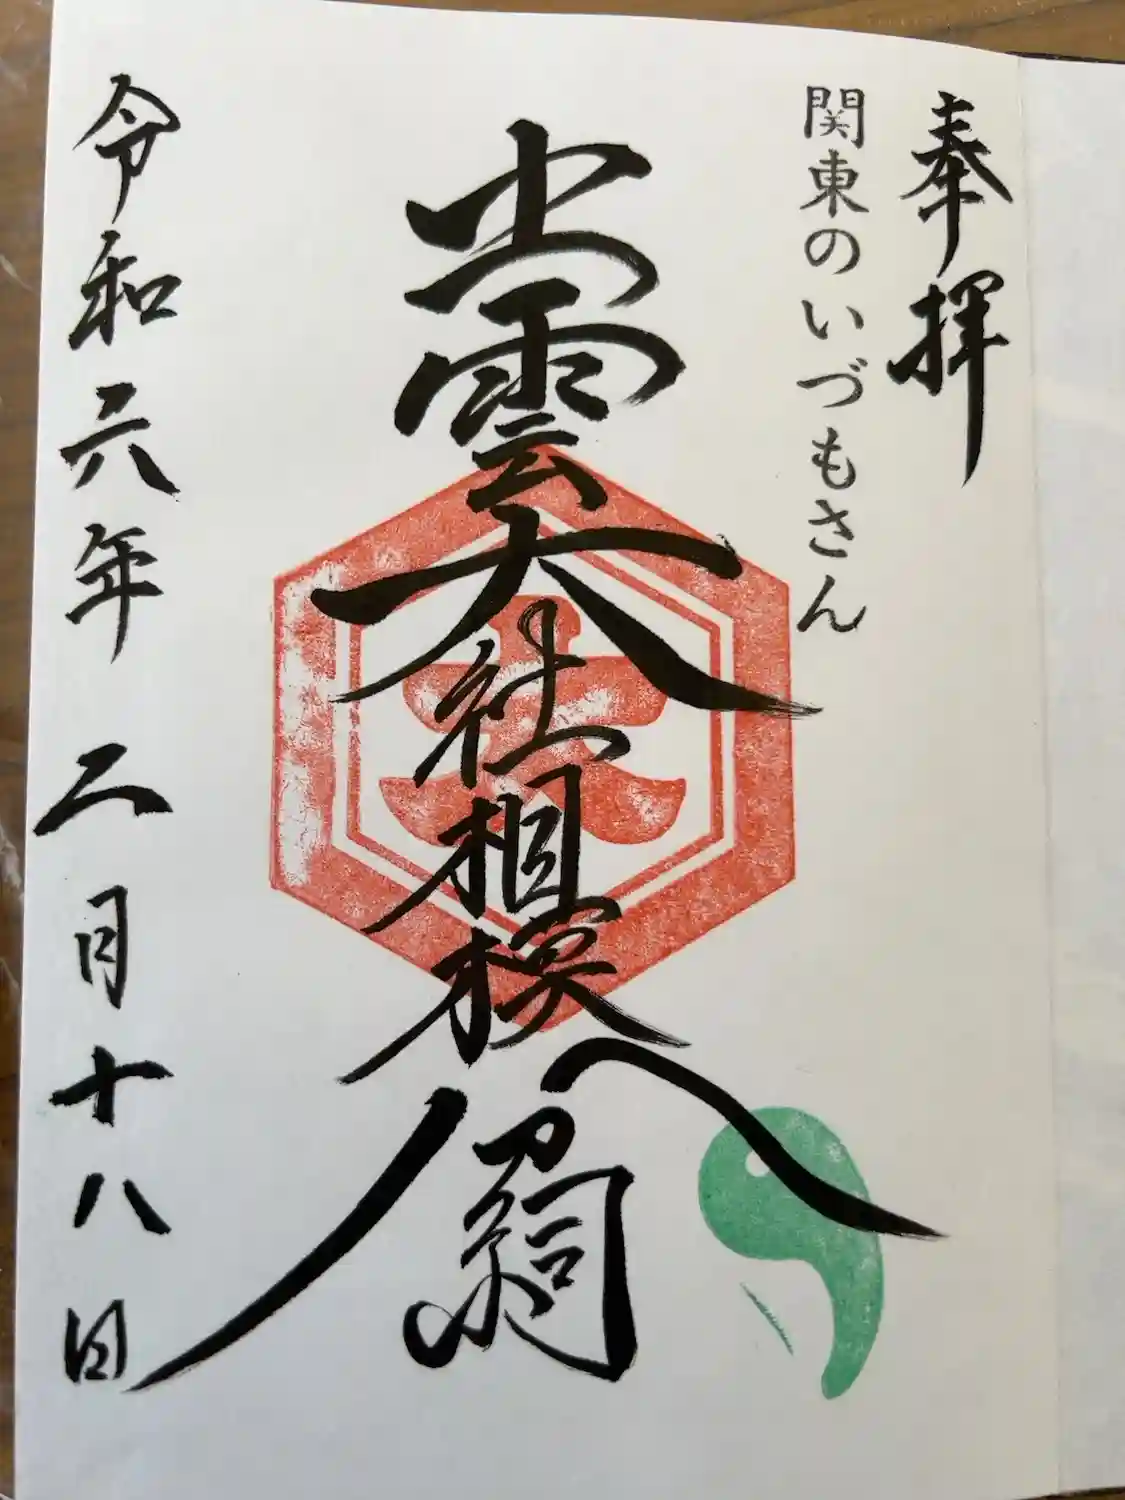 奉拝
関東のいづもさん
出雲大社相模分祠
令和六年 二月十八日